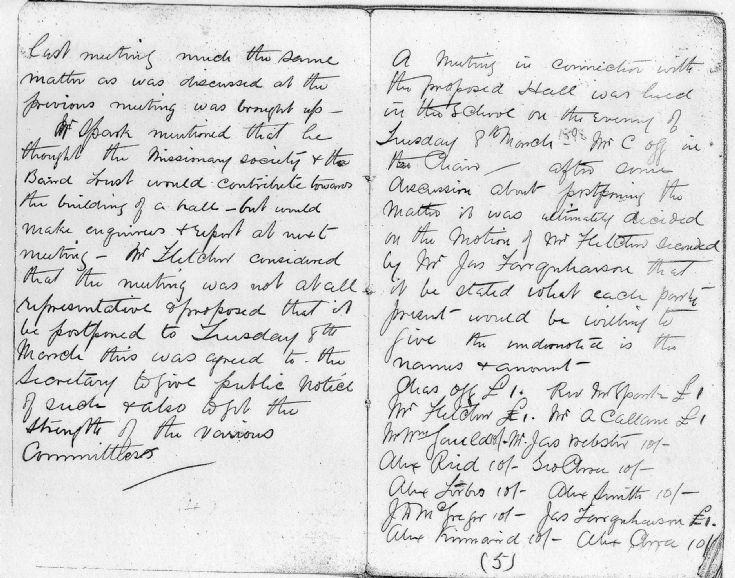 last meeting much the same
matter as was discussed at the
previous meeting was brought up –
Mr Spark mentioned that he
thought the Missionary society & the
Baird Trust would contribute towards
the building of a hall – but would
make enquires & report at next
meeting – Mr Fletcher considered
that the meeting was not at all
representative & proposed that it
be postponed to Tuesday 8th
March this was agreed to the
Secretary to give public notice
of such & also to get the
strength of the various
Committees
A Meeting in connection with
the proposed Hall was held
in the School on the Evening of
Tuesday 8th March Mr C off in
the Chair – after some
discussion about postponing the
Matter it was ultimately decided
on the Motion of Mr Fletcher seconded
by Mr Jas Farquharson that
it be stated what each party
present would be willing to
give the undernoted is the
names & amount –
Chas off £1. Rev Mr Spark £1
Mr Fletcher £1. Mr A Callam £1
Mr Wm Gauld Mr Jas Webster 10/–
Alex Reid 10/– Geo 10/–
Alex Forbes 10/– Alex Smith 10/–
McGregor 10/– Jas Farquharson £1.
Alex Kinnaird 10/– Alex 10/
(5)